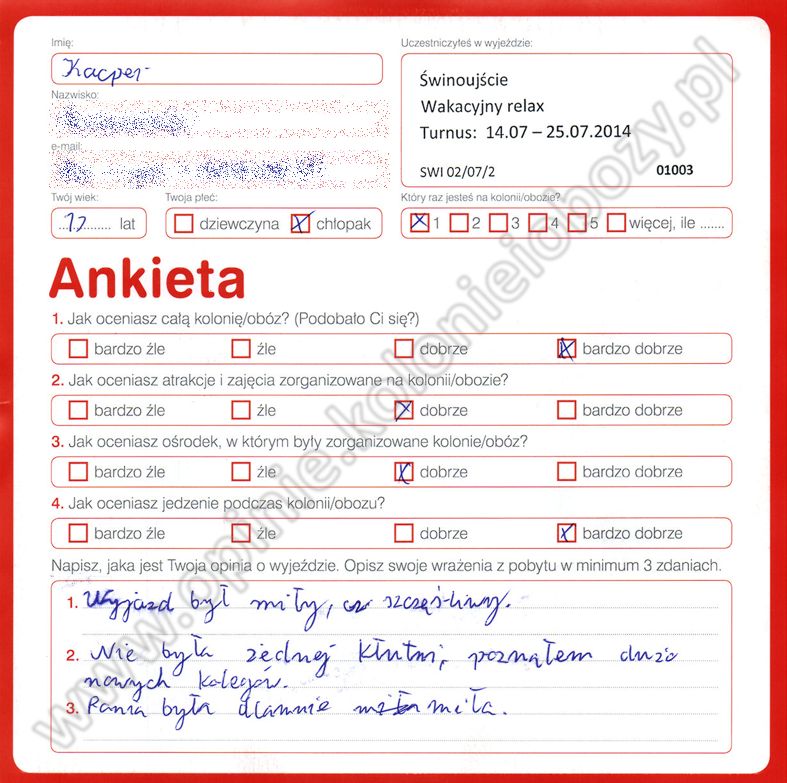 Imię:
Kacper
Uczestniczyłeś w wyjeździe:
Świnoujście
Wakacyjny relax
Turnus: 14.07 – 25.07.2014
SWI 02/07/2
01003
Nazwisko:
e-mail:
Twój wiek:
12 lat
Twoja płeć:
dziewczyna chłopak
Który raz jesteś na kolonii/obozie?
1 2 3 4 5 więcej, ile .......
Ankieta
1. Jak oceniasz całą kolonię/obóz? (Podobało Ci się?)
bardzo źle źle dobrze bardzo dobrze
2. Jak oceniasz atrakcje i zajęcia zorganizowane na kolonii/obozie?
bardzo źle źle dobrze bardzo dobrze
3. Jak oceniasz ośrodek, w którym były zorganizowane kolonie/obóz?
bardzo źle źle dobrze bardzo dobrze
4. Jak oceniasz jedzenie podczas kolonii/obozu?
bardzo źle źle dobrze bardzo dobrze
Napisz, jaka jest Twoja opinia o wyjeździe. Opisz swoje wrażenia z pobytu w minimum 3 zdaniach.
1. Wyjazd był miły, szczęśliwy.
2. Nie była żednej kłutni, poznałem dużo
nowych kolegów.
3. Pania była dlamnie miła.
www.opinie.kolonieiobozy.pl